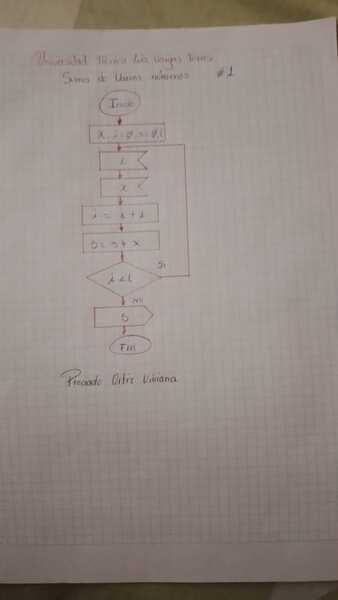 Universidad Técnica Luis Vargas Torres
Suma de Varios números #1
Inicio
x, i=0, s=0, L
L
x
i = i + 1
S = S + x
Si
i < L
No
S
Fin
Preciado Ortiz Viviana